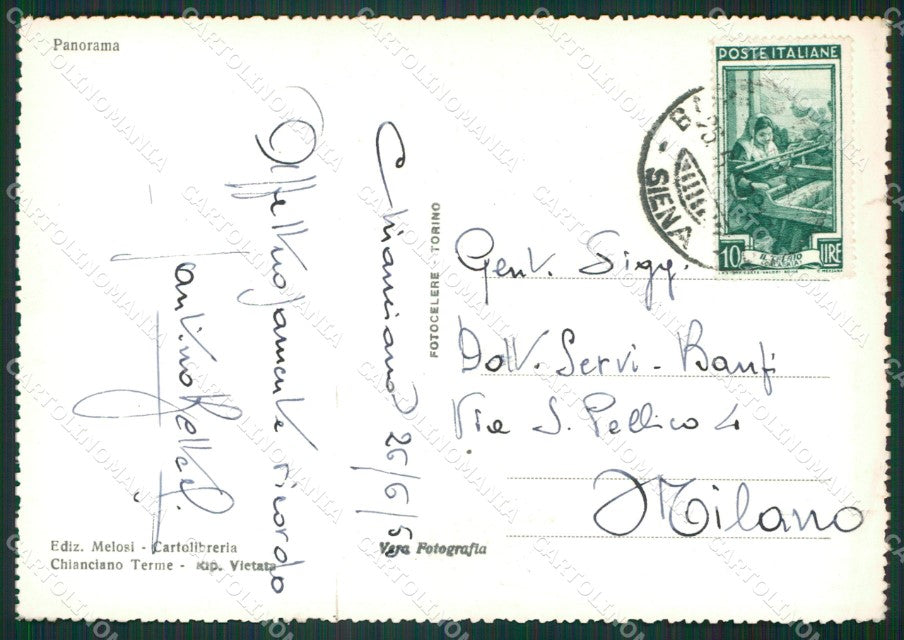 Panorama
POSTE ITALIANE
10 LIRE
SIENA
Chianciano 26/6/53
Affettuosamente ricordo
FOTOCELERE - TORINO
Gent. Sigg.
Dott. Servi - Banfi
Via S. Pellico 4
Milano
Vera Fotografia
Ediz. Melosi - Cartolibreria
Chianciano Terme - Rip. Vietata
CARTOLINOMANIA